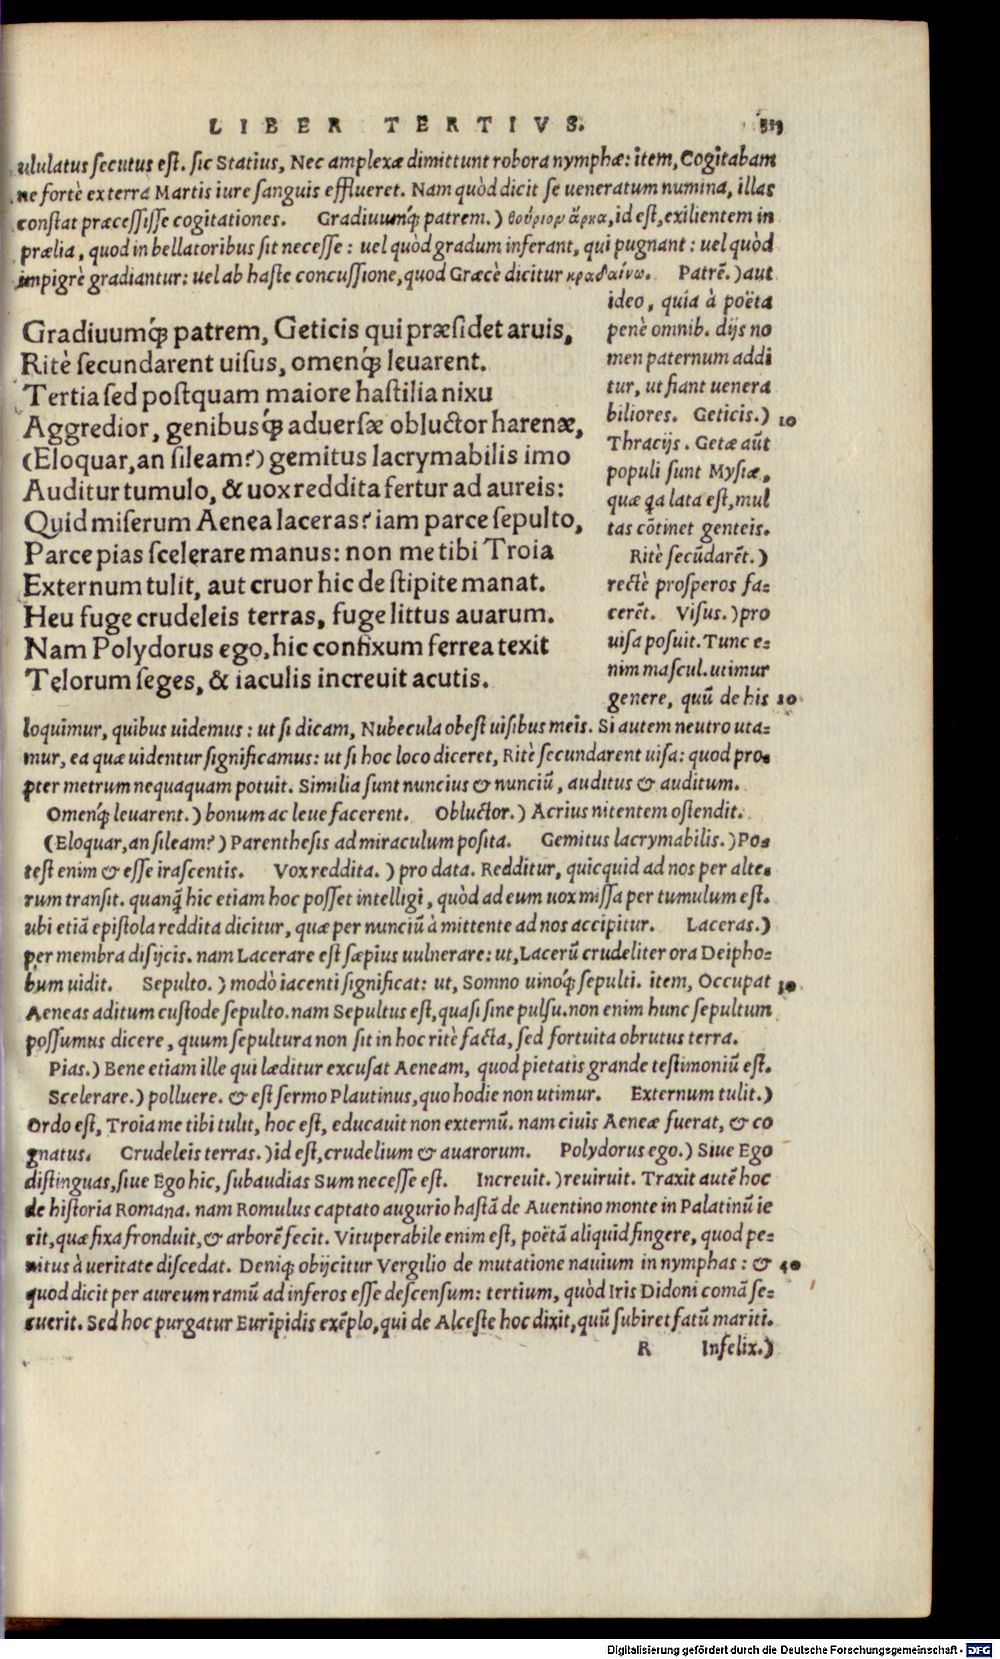 LIBER TERTIVS.
ululatus secutus est. sic Statius, Nec amplexæ dimittunt robora nymphæ: item, Cogitabam
ne fortè ex terra Martis iure sanguis efflueret. Nam quòd dicit se ueneratum numina, illas
constat præcessisse cogitationes. Gradiuumq́; patrem.) θούριον ἄρηα, id est, exilientem in
prælia, quod in bellatoribus sit necesse: uel quòd gradum inferant, qui pugnant: uel quòd
impigrè gradiantur: uel ab hastę concussione, quod Græcè dicitur κραδαίνω. Patrē.) aut
ideo, quia à poëta
penè omnib. dijs no
men paternum addi
tur, ut fiant uenera
biliores. Geticis.) 10
Thracijs. Getæ aūt
populi sunt Mysiæ,
quæ q̃a lata est, mul
tas cõtinet genteis.
Ritè secũdarēt.)
rectè prosperos fa-
cerēt. Visus.) pro
uisa posuit. Tunc e-
nim mascul. utimur
genere, quū de his 20
Gradiuumq́; patrem, Geticis qui præsidet aruis,
Ritè secundarent uisus, omenq́; leuarent.
Tertia sed postquam maiore hastilia nixu
Aggredior, genibusq́; aduersæ obluctor harenæ,
(Eloquar, an sileam?) gemitus lacrymabilis imo
Auditur tumulo, & uox reddita fertur ad aureis:
Quid miserum Aenea laceras? iam parce sepulto,
Parce pias scelerare manus: non me tibi Troia
Externum tulit, aut cruor hic de stipite manat.
Heu fuge crudeleis terras, fuge littus auarum.
Nam Polydorus ego, hic confixum ferrea texit
Telorum seges, & iaculis increuit acutis.
loquimur, quibus uidemus: ut si dicam, Nubecula obest uisibus meis. Si autem neutro uta-
mur, ea quæ uidentur significamus: ut si hoc loco diceret, Ritè secundarent uisa: quod pro-
pter metrum nequaquam potuit. Similia sunt nuncius & nunciū, auditus & auditum.
Omenq́; leuarent.) bonum ac leue facerent. Obluctor.) Acrius nitentem ostendit.
(Eloquar, an sileam?) Parenthesis ad miraculum posita. Gemitus lacrymabilis.) Po-
test enim & esse irascentis. Vox reddita.) pro data. Redditur, quicquid ad nos per alte-
rum transit. quanq̃ hic etiam hoc posset intelligi, quòd ad eum uox missa per tumulum est.
ubi etiã epistola reddita dicitur, quæ per nunciū à mittente ad nos accipitur. Laceras.)
per membra disijcis. nam Lacerare est sæpius uulnerare: ut, Lacerū crudeliter ora Deipho-
bum uidit. Sepulto.) modò iacenti significat: ut, Somno uinoq́; sepulti. item, Occupat 30
Aeneas aditum custode sepulto. nam Sepultus est, quasi sine pulsu. non enim hunc sepultum
possumus dicere, quum sepultura non sit in hoc ritè facta, sed fortuita obrutus terra.
Pias.) Bene etiam ille qui læditur excusat Aeneam, quod pietatis grande testimoniū est.
Scelerare.) polluere. & est sermo Plautinus, quo hodie non utimur. Externum tulit.)
Ordo est, Troia me tibi tulit, hoc est, educauit non externū. nam ciuis Aeneæ fuerat, & co
gnatus. Crudeleis terras.) id est, crudelium & auarorum. Polydorus ego.) Siue Ego
distinguas, siue Ego hic, subaudias Sum necesse est. Increuit.) reuiruit. Traxit autē hoc
de historia Romana. nam Romulus captato augurio hastã de Auentino monte in Palatinū ie
cit, quæ fixa fronduit, & arborē fecit. Vituperabile enim est, poëtã aliquid fingere, quod pe-
nitus à ueritate discedat. Deniq; obijcitur Vergilio de mutatione nauium in nymphas: & 40
quod dicit per aureum ramū ad inferos esse descensum: tertium, quòd Iris Didoni comã se-
cuerit. Sed hoc purgatur Euripidis exēplo, qui de Alceste hoc dixit, quū subiret fatū mariti.
R Infelix.)
Digitalisierung gefördert durch die Deutsche Forschungsgemeinschaft - DFG